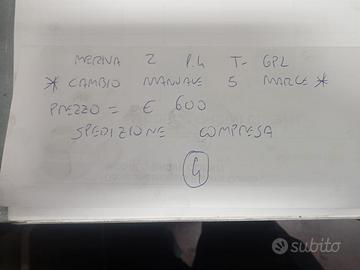 MERIVA 2 1.4 T- GPL
* CAMBIO MANUALE 5 MARCE *
PREZZO = € 600
SPEDIZIONE COMPRESA
G
subito